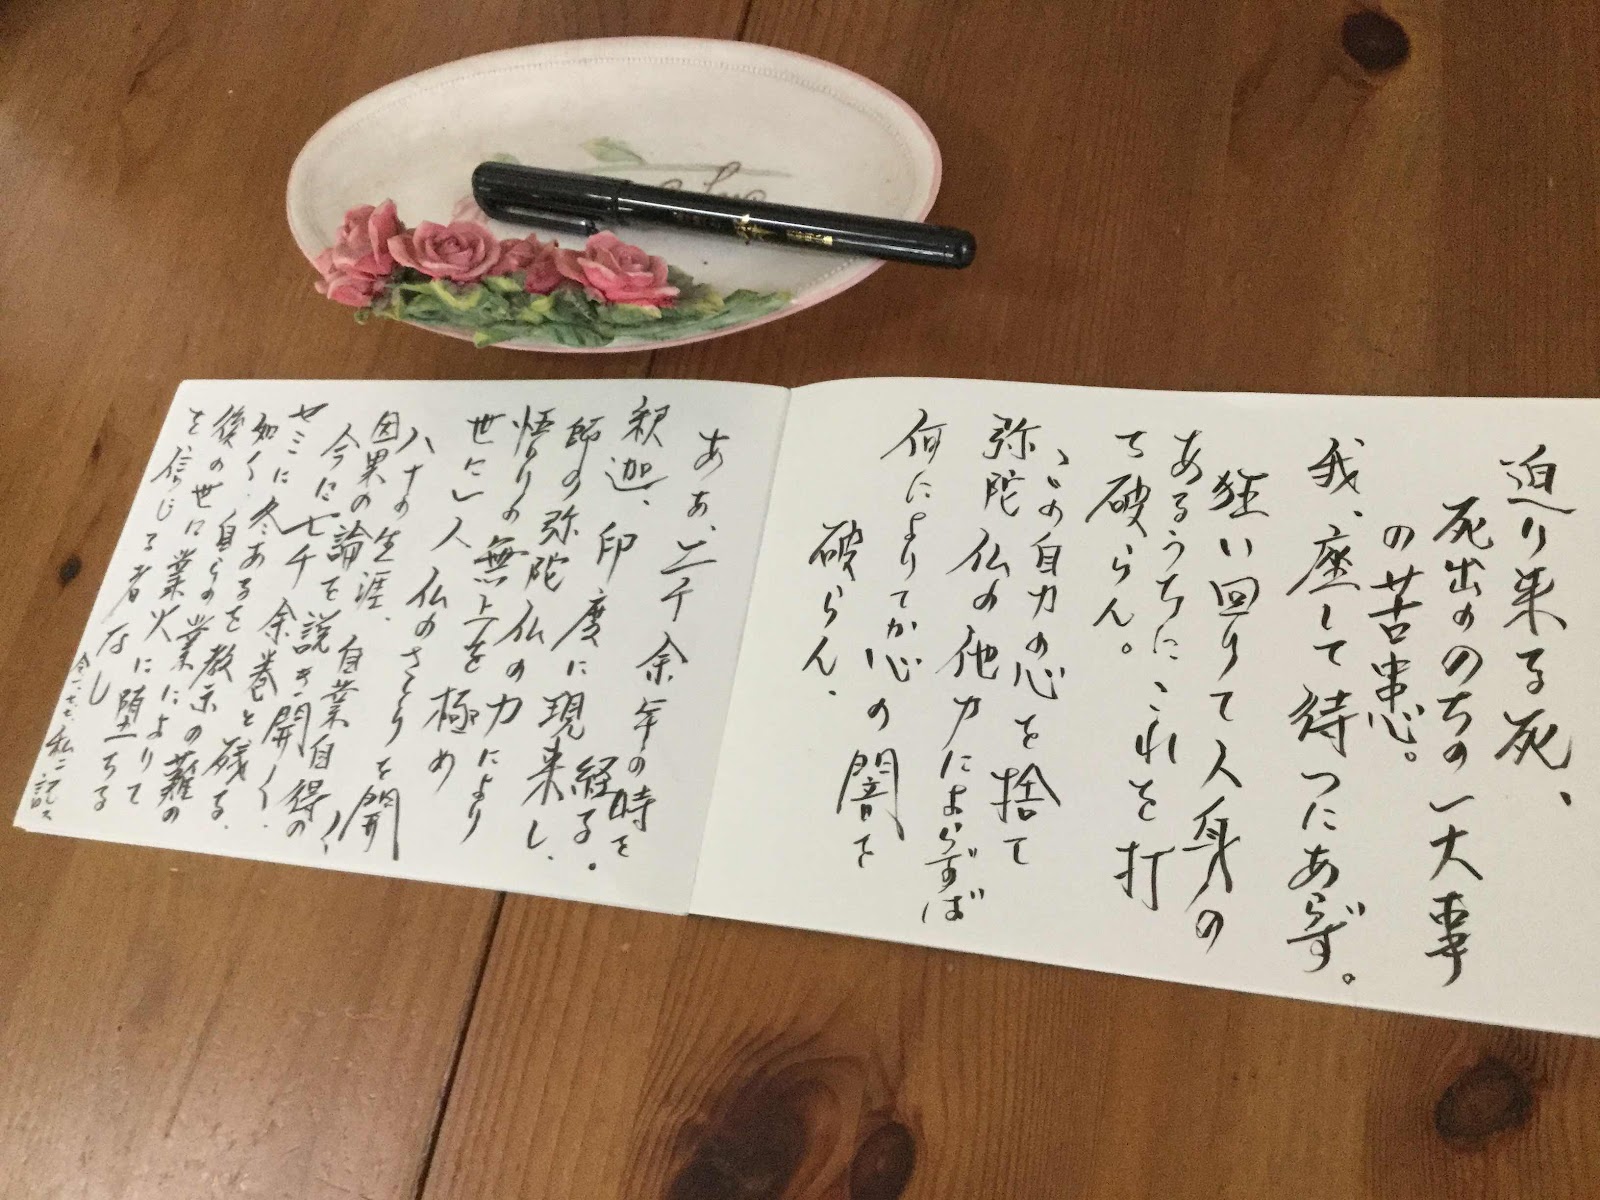 迫り来る死、
死出ののちの一大事
の苦患。
我、座して待つにあらず。
狂い回りて人身の
あるうちにこれを打
て破らん。
この自力の心を捨て
弥陀仏の他力によらずば
何によりてか心の闇を
破らん、
あぁ、二千余年の時を
経る。
釈迦、印度に現来し、
師の弥陀仏の力により
悟りの無上を極め
世に一人仏のさとりを開く
八十の生涯、自業自得の
因果の論を説き開く、
今に七千余巻と残る、
せミに冬あるを教示の難の
如く、自らの業によりて
後の世に業火に堕ちる
を信じる者なし